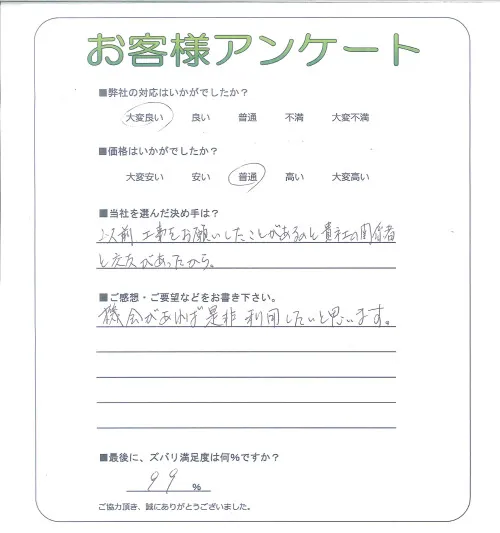 お客様アンケート
■弊社の対応はいかがでしたか？
大変良い 良い 普通 不満 大変不満
■価格はいかがでしたか？
大変安い 安い 普通 高い 大変高い
■当社を選んだ決め手は？
以前 工事をお願いしたことがあるのと貴社の関係者
と交友があったから。
■ご感想・ご要望などをお書き下さい。
機会があれば是非利用したいと思います。
■最後に、ズバリ満足度は何％ですか？
99 ％
ご協力頂き、誠にありがとうございました。